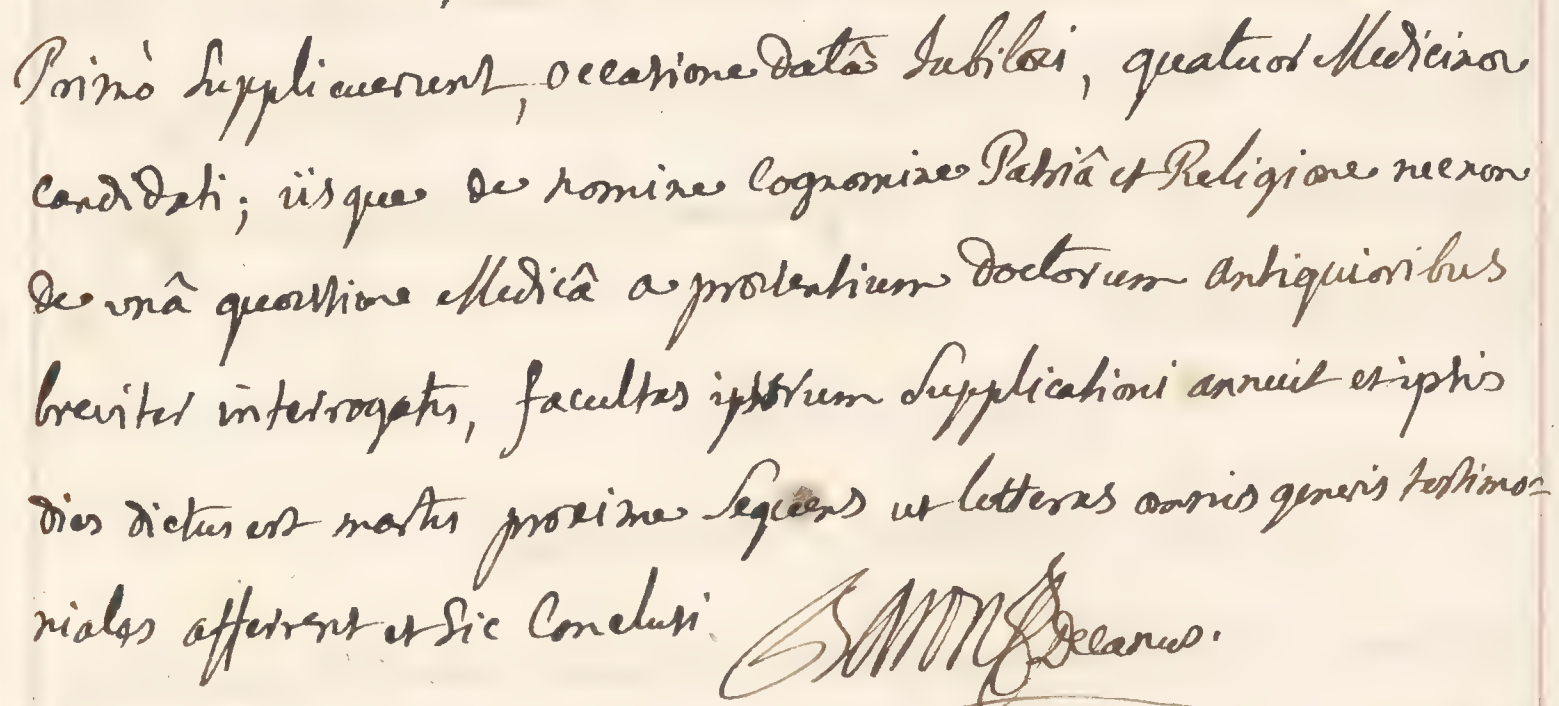 Primò Supplicuerunt, occasione datâ Iubilæi, quatuor Medicinæ
candidati; iisque de nomine Cognomine Patriâ et Religione necnon
de unâ quæstione Medicâ a præsentium doctorum antiquioribus
breviter interrogatis, facultas ipsorum Supplicationi annuit et ipsis
dies dictus est martis proxime Sequens ut litteras omnis generis testimo=
niales afferrent et Sic Conclusi.
Baron Decanus.